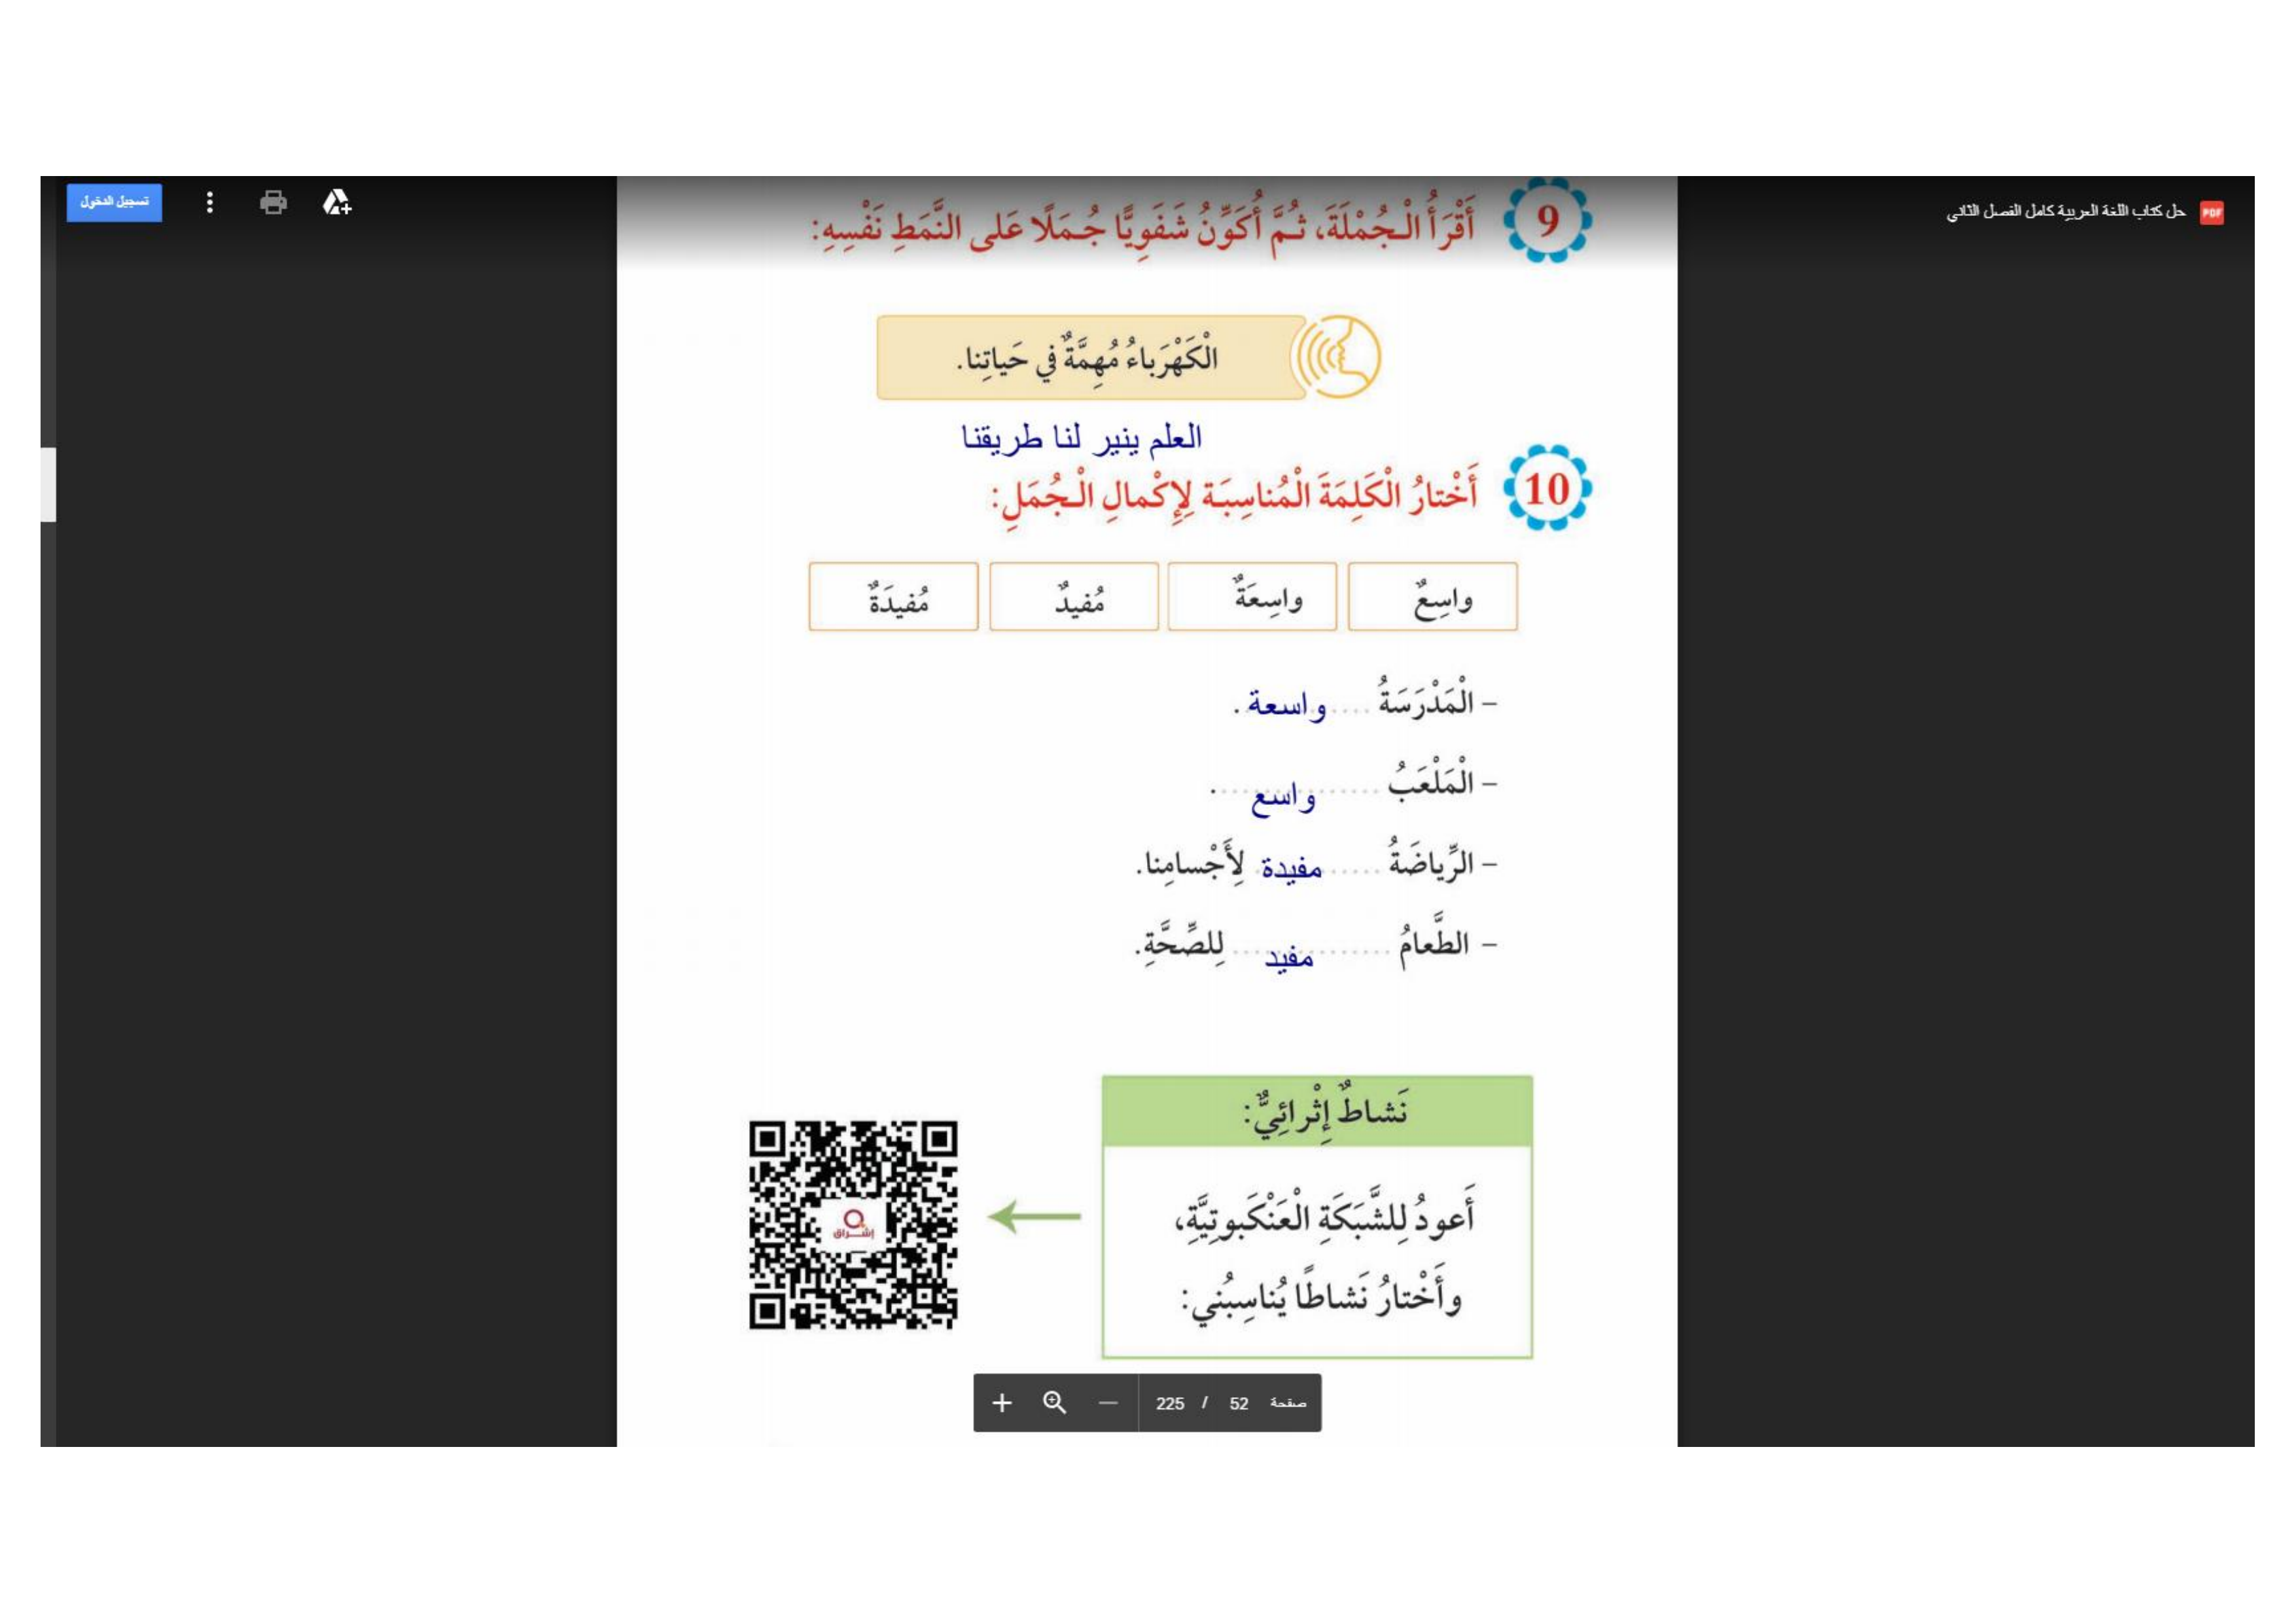 حل كتاب اللغة العربية كامل الفصل الثاني
PDF
تسجيل الدخول
9 أَقْرَأُ الْجُمْلَةَ، ثُمَّ أُكَوِّنُ شَفَوِيًّا جُمَلًا عَلى النَّمَطِ نَفْسِهِ:
الْكَهْرَباءُ مُهِمَّةٌ في حَياتِنا.
العلم ينير لنا طريقنا
10 أَخْتارُ الْكَلِمَةَ الْمُناسِبَة لِإِكْمالِ الْجُمَلِ:
واسِعٌ واسِعَةٌ مُفيدٌ مُفيدَةٌ
– الْمَدْرَسَةُ .... واسعة .
– الْمَلْعَبُ ...... واسع .....
– الرِّياضَةُ ..... مفيدة لِأَجْسامِنا.
– الطَّعامُ ....... مفيد ... لِلصِّحَّةِ.
نَشاطٌ إِثْرائِيٌّ:
أَعودُ لِلشَّبَكَةِ الْعَنْكَبوتِيَّةِ،
وأَخْتارُ نَشاطًا يُناسِبُني:
إشراق
صفحة 52 / 225